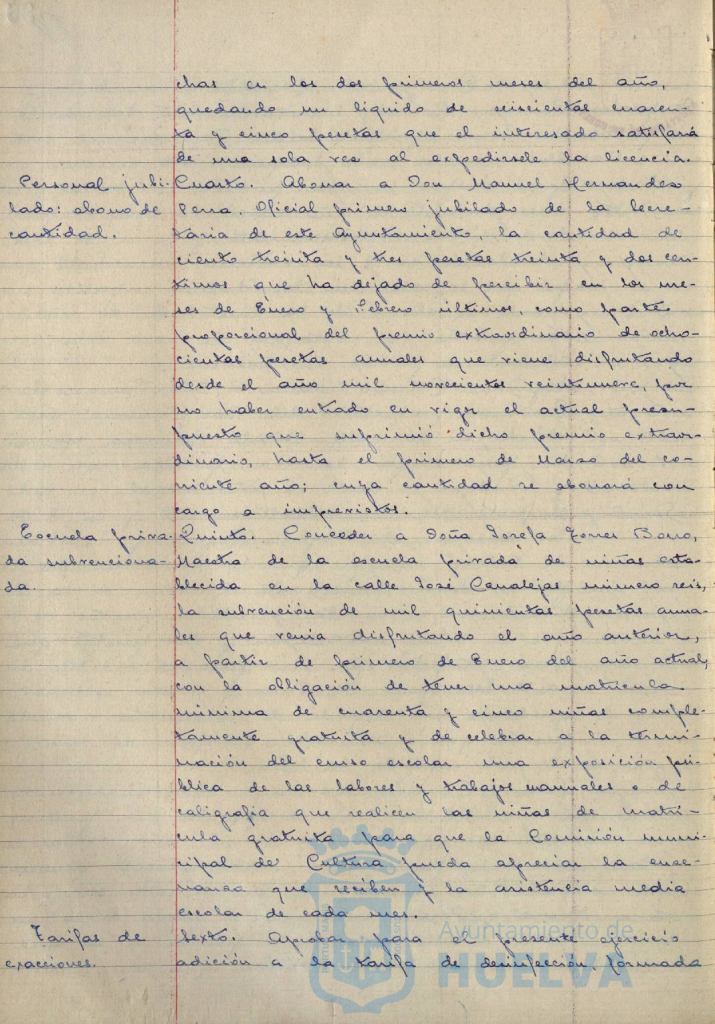 chas en los dos primeros meses del año,
quedando un liquido de seiscientas cuaren-
ta y cinco pesetas que el interesado satisfará
de una sola vez al expedirsele la licencia.
Personal jubi-
lado: abono de
cantidad.
Cuarto. Abonar a Don Manuel Hernandez
Perra, Oficial primero jubilado de la Secre-
taria de este Ayuntamiento, la cantidad de
ciento treinta y tres pesetas treinta y dos cen-
timos que ha dejado de percibir en los me-
ses de Enero y Febrero últimos, como parte
proporcional del premio extraordinario de ocho-
cientas pesetas anuales que viene disfrutando
desde el año mil novecientos veintinueve, por
no haber entrado en vigor el actual presu-
puesto que suprimió dicho premio extraor-
dinario, hasta el primero de Marzo del co-
rriente año; cuya cantidad se abonará con
cargo a imprevistos.
Escuela priva-
da subvenciona-
da.
Quinto. Conceder a Doña Josefa Torres Borro,
Maestra de la escuela privada de niñas esta-
blecida en la calle José Canalejas número seis,
la subvención de mil quinientas pesetas anua-
les que venia disfrutando el año anterior,
a partir de primero de Enero del año actual,
con la obligación de tener una matricula
minima de cuarenta y cinco niñas comple-
tamente gratuita y de celebrar a la termi-
nación del curso escolar una exposición pú-
blica de las labores y trabajos manuales o de
caligrafia que realicen las niñas de matri-
cula gratuita para que la Comisión muni-
cipal de Cultura pueda apreciar la ense-
ñanza que reciben y la asistencia media
escolar de cada mes.
Tarifas de
exacciones.
Sexto. Aprobar para el presente ejercicio
adición a la tarifa de desinfección, formada
Ayuntamiento de
HUELVA